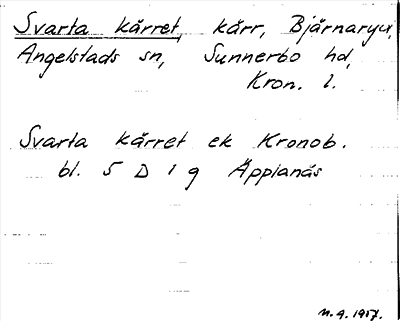 Svarta kärret, kärr, Bjärnaryd,
Angelstads sn, Sunnerbo hd,
Kron. l.
Svarta kärret ek Kronob.
bl. 5 D 1 g Äpplanäs